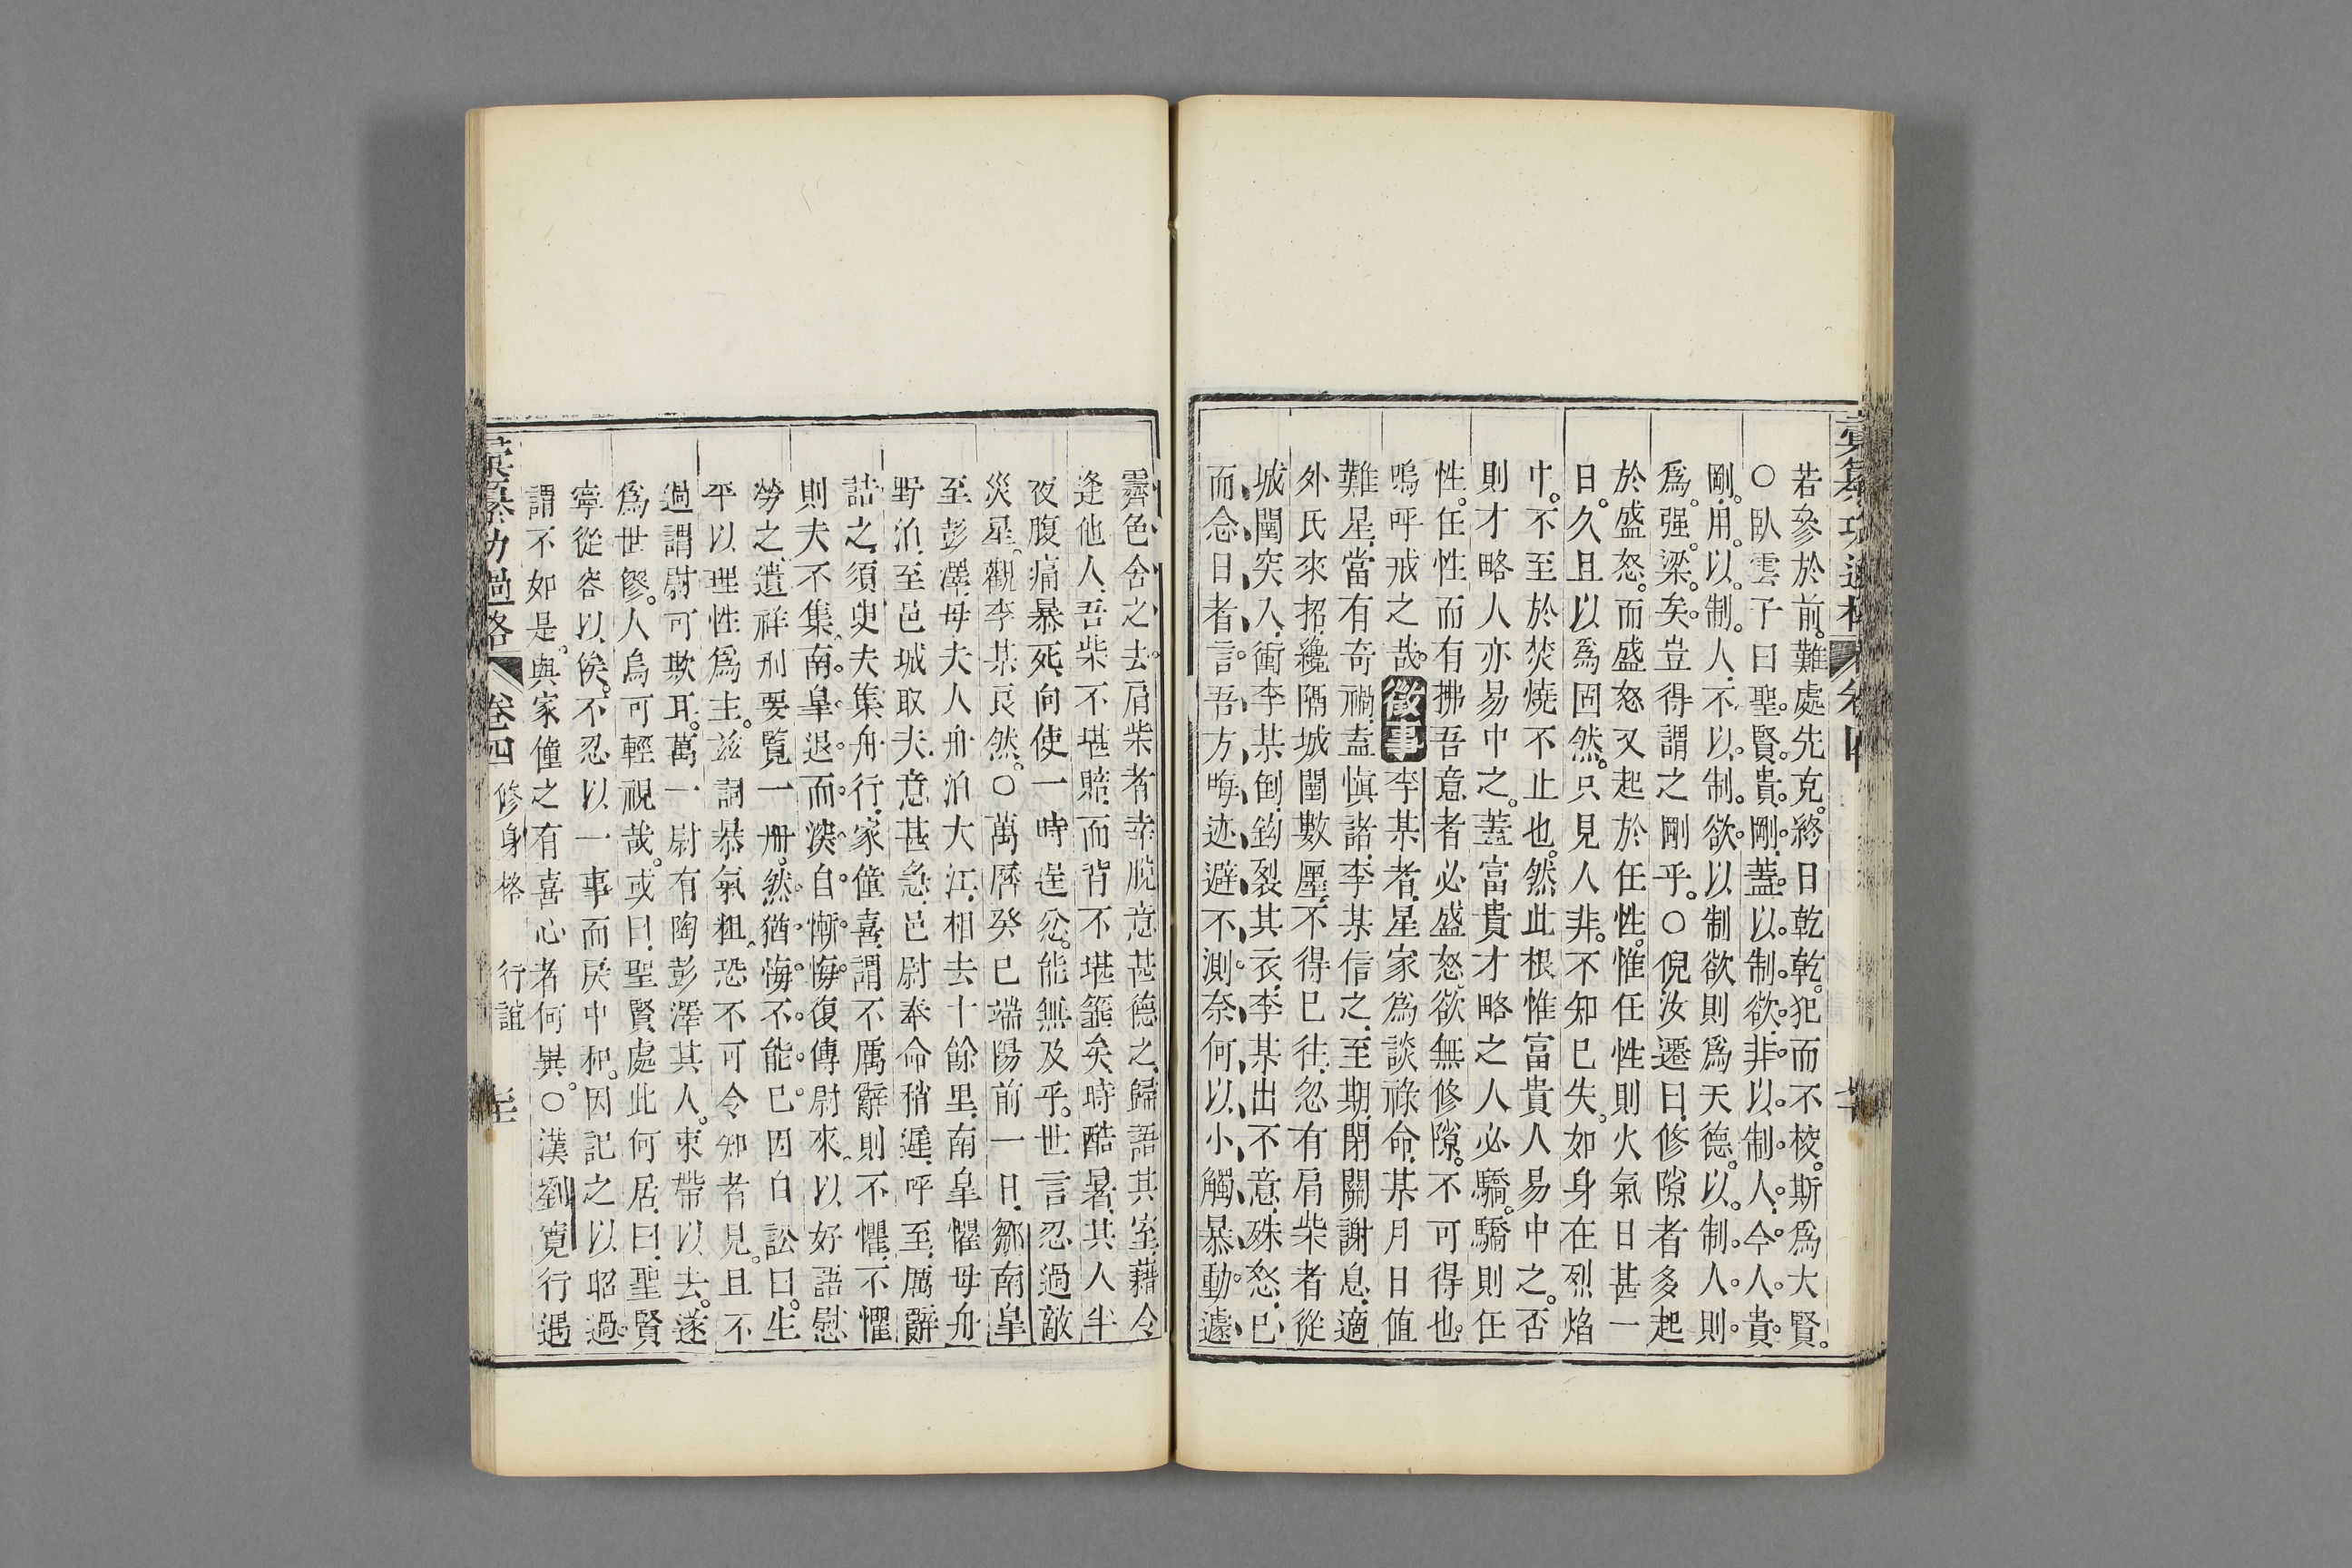 若參於前。難處先克。終日乾乾。犯而不校。斯爲大賢。
○臥雲子曰。聖賢貴剛。蓋以制欲。非以制人。今人貴
剛。用以制人。不以制欲。以制欲則爲天德。以制人則
爲强梁矣。豈得謂之剛乎。○倪汝遷曰。修隙者多起
於盛怒。而盛怒又起於任性。惟任性則火氣日甚一
日。久且以爲固然。只見人非。不知已失。如身在烈焰
中。不至於焚燒不止也。然此根惟富貴人易中之。否
則才略人亦易中之。蓋富貴才略之人必驕。驕則任
性。任性而有拂吾意者必盛怒。欲無修隙。不可得也。
嗚呼戒之哉。徵事李某者。星家爲談祿命。某月日值
難星。當有奇禍。盍愼諸。李某信之。至期。閉關謝息。適
外氏來招。纔隔城闉數廛。不得已往。忽有肩柴者從
城闉突入。衝李某倒。鈎裂其衣。李某出不意。殊怒。已
而念曰。者言吾方晦迹避不測。奈何以小觸暴動。遽
霽色舍之去。肩柴者幸脫。意甚德之。歸語其室。藉令
逢他人。吾柴不堪賠。而背不堪箠矣。時酷暑。其人半
夜腹痛暴死。向使一時逞忿。能無及乎。世言忍過敵
災星。觀李某良然。○萬曆癸巳端陽前一日。鄒南臯
至彭澤。母夫人舟泊大江。相去十餘里。南臯懼母舟
野泊。至邑城取夫。意甚急。邑尉奉命稍遲。呼至。厲辭
詰之。須臾夫集舟行。家僮喜。謂不厲辭則不懼。不懼
則夫不集。南臯退而深自慚悔。復傳尉來。以好語慰
勞之。遺祥刑要覽一冊。然猶悔不能已。因自訟曰。生
平以理性爲主。兹詞暴氣粗。恐不可令知者見。且不
過謂尉可欺耳。萬一尉有陶彭澤其人。束帶以去。遂
爲世僇。人烏可輕視哉。或曰。聖賢處此何居。曰。聖賢
寧從容以俟。不忍以一事而戾中和。因記之以昭過。
謂不如是。與家僮之有喜心者何異。○漢劉寬行遇
彙纂功過格 卷四 修身格 行誼